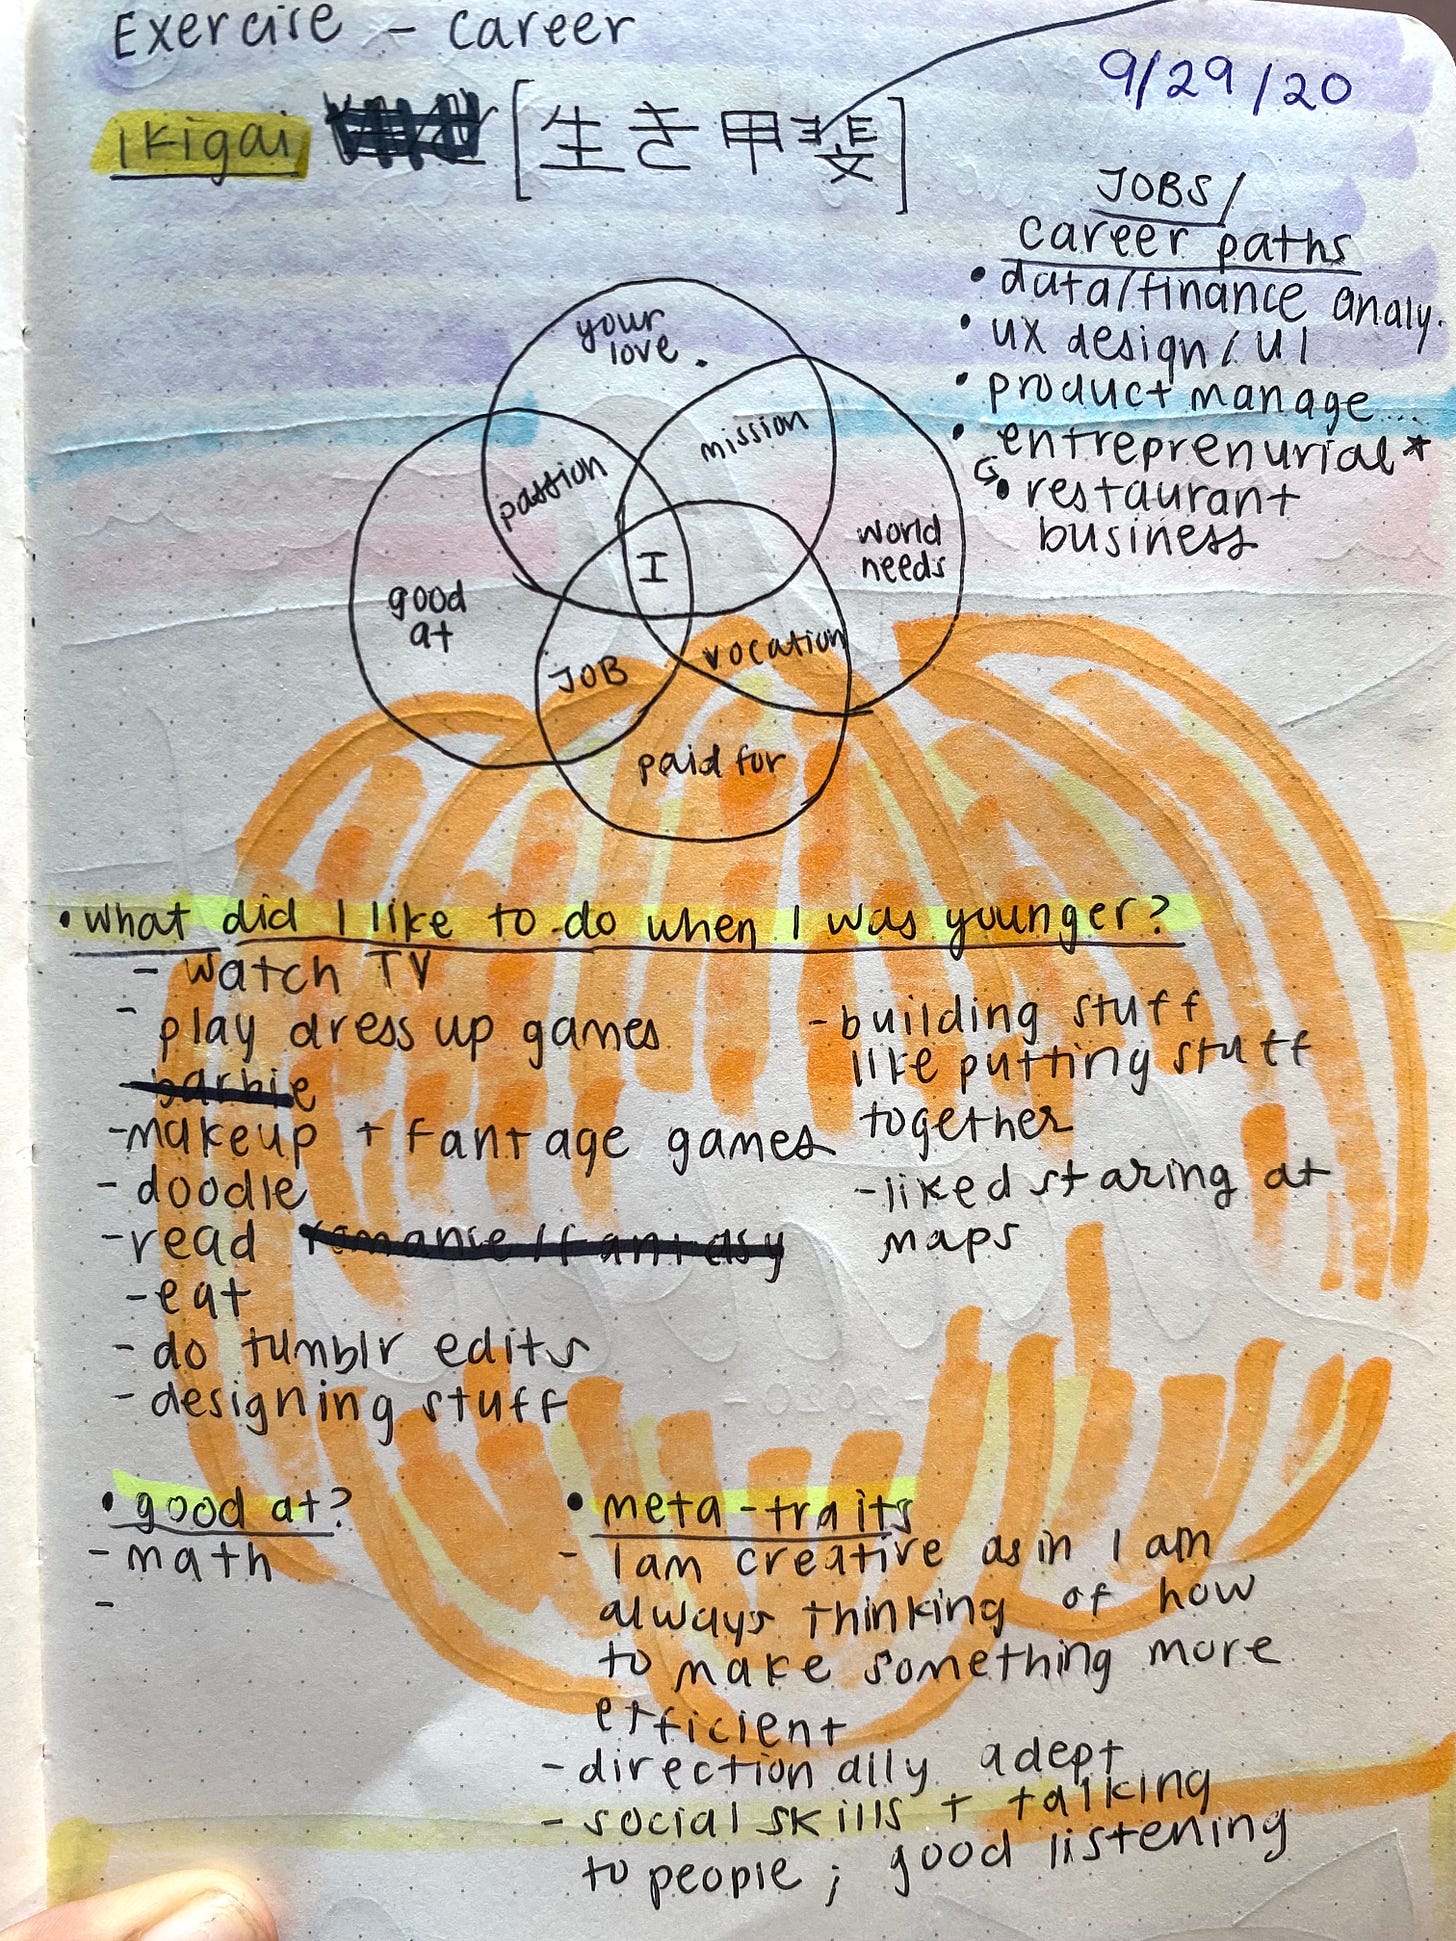 Exercise - career
9/29/20
ikigai [生き甲斐]
JOBS/
career paths
• data/finance analy.
• UX design/UI
• product manage...
• entreprenurial*
• restaurant
business
your
love.
mission
passion
world
needs
I
good
at
JOB
vocation
paid for
• what did I like to do when I was younger?
- watch TV
- play dress up games
- barbie
- makeup + Fantage games
- doodle
- read romance/fantasy
- eat
- do tumblr edits
- designing stuff
- building stuff
like putting stuff
together
- liked staring at
maps
• good at?
- math
-
• meta-traits
- I am creative as in I am
always thinking of how
to make something more
efficient
- directionally adept
- social skills + talking
to people; good listening